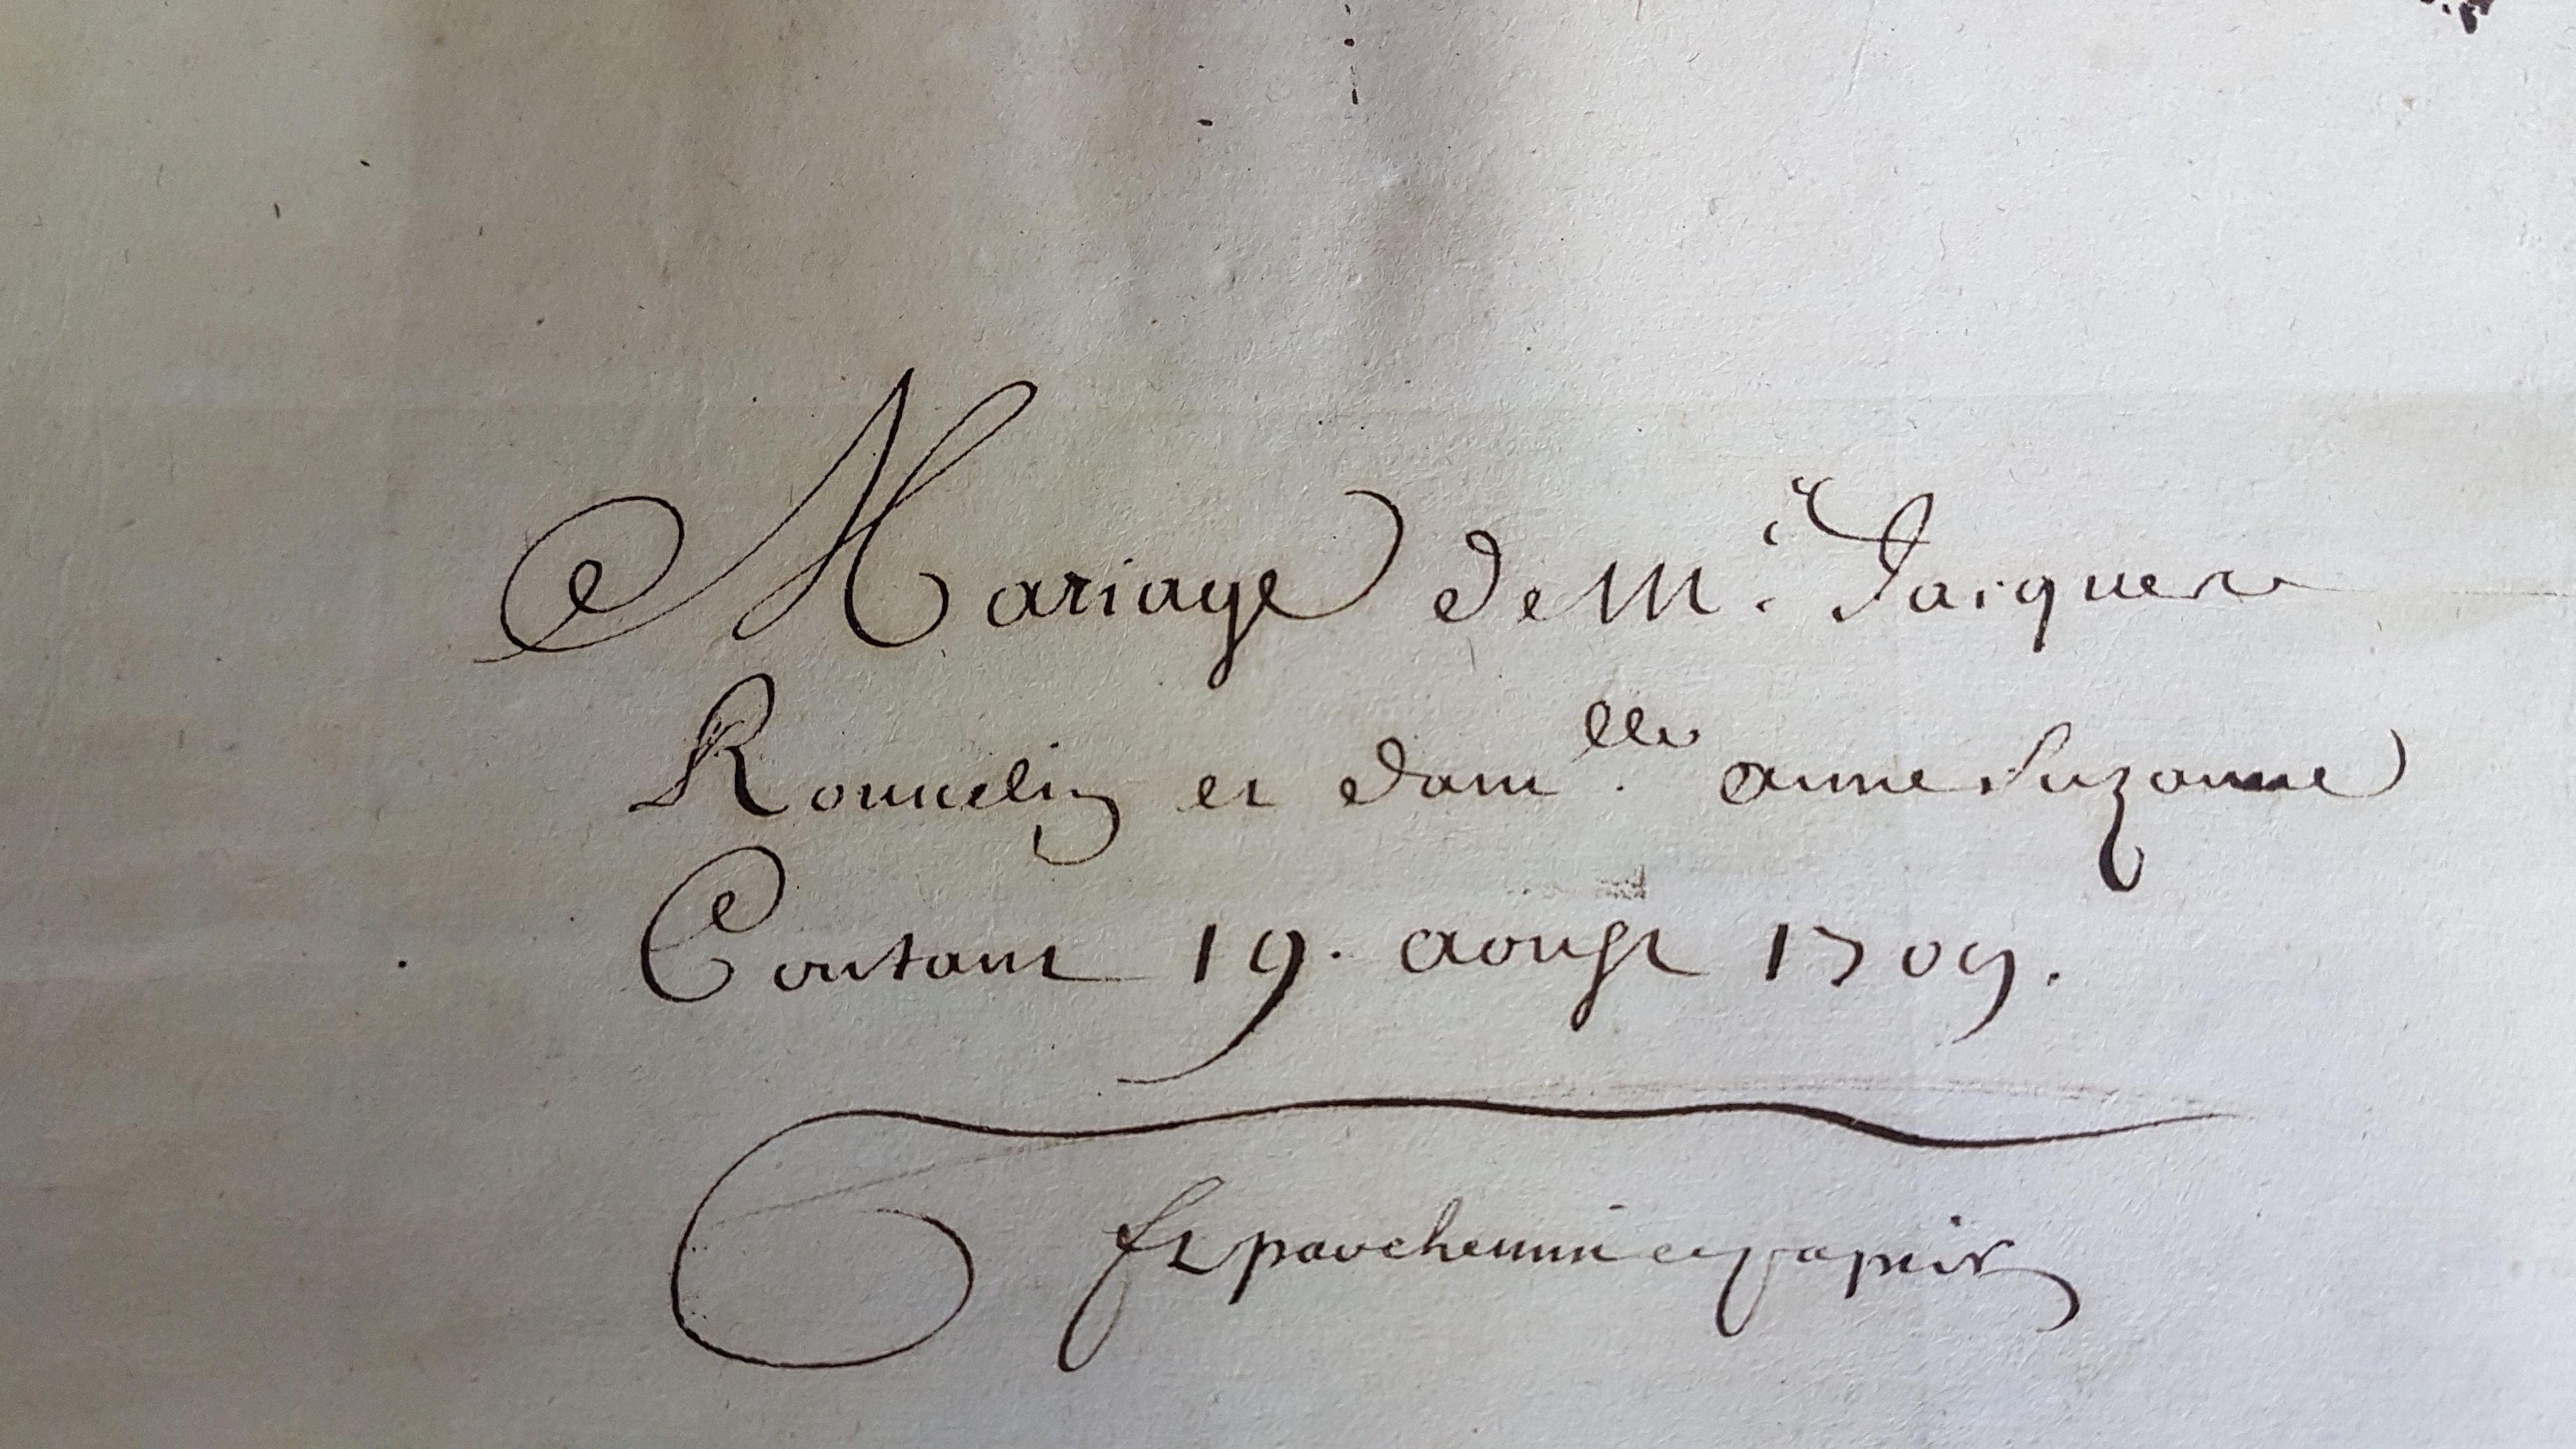 Mariage de Mr. Jacques
Ronnelin et dam.lle anne Suzanne
Contant 19. aoust 1709.
ft parchemin et papier